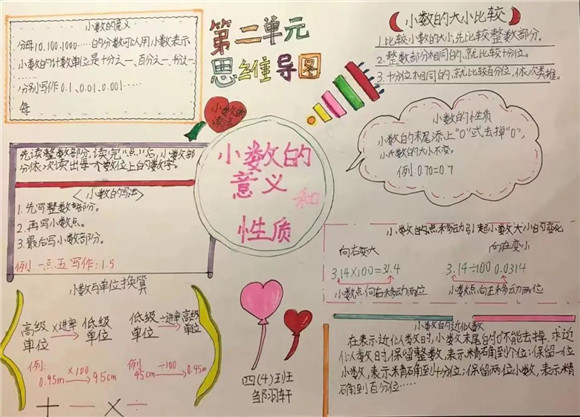 小数的意义
分母10,100,1000……的分数可以用小数表示
小数的计数单位是十分之一、百分之一、千分之一……
分别写作0.1、0.01、0.001……
每
第二单元
思维导图
小数的大小比较
1.比较小数的大小,先比较整数部分。
2.整数部分相同的,就比较十分位。
3.十分位相同的,就比较百分位,依次类推。
小数的读法
先读整数部分,读完“点”后,小数部
分依次读出每个数位上的数字。
<小数的写法>
1.先写整数部分。
2.再写小数点。
3.最后写小数部分。
例:一点五 写作:1.5
小数的
意义
和
性质
小数的性质
小数的末尾添上“0”或去掉“0”,
小数的大小不变。
例:0.70=0.7
小数的小数点移动引起小数大小的变化
向右变大
向左变小
3.14×100=314
3.14÷100 0.0314
小数点向右移动两位
小数点向左移动两位
小数与单位换算
高级单位 ×进率 低级单位
低级单位 ÷进率 高级单位
例:
0.95m ×100 95cm
例:
95cm ÷100 0.95m
+ − × ÷
四(4)班
邹羽轩
小数的近似数
在表示近似数时,小数末尾的0不能去掉,求近
似数时,保留整数,表示精确到个位;保留一位
小数,表示精确到十分位;保留两位小数,表示精
确到百分位……